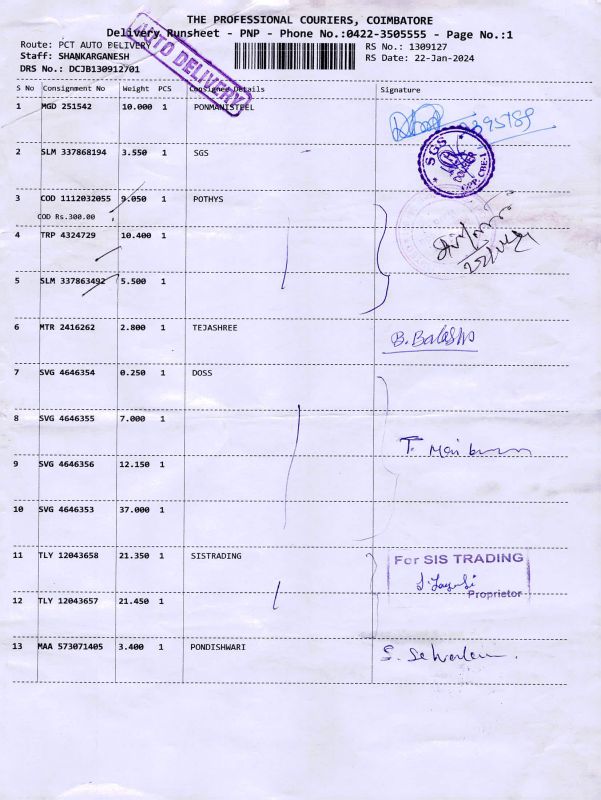 THE PROFESSIONAL COURIERS, COIMBATORE
Delivery Runsheet - PNP - Phone No.:0422-3505555 - Page No.:1
Route: PCT AUTO DELIVERY
RS No.: 1309127
Staff: SHANKARGANESH
RS Date: 22-Jan-2024
DRS No.: DCJB130912701
AUTO DELIVERY
S No Consignment No Weight PCS Consignee Details Signature
1 MGD 251542 10.000 1 PONMANISTEEL
2 SLM 337868194 3.550 1 SGS
SGS
3 COD 1112032055 9.050 1 POTHYS
COD Rs.300.00
4 TRP 4324729 10.400 1
5 SLM 337863492 5.500 1
6 MTR 2416262 2.800 1 TEJASHREE
7 SVG 4646354 0.250 1 DOSS
8 SVG 4646355 7.000 1
T. Mani
9 SVG 4646356 12.150 1
10 SVG 4646353 37.000 1
11 TLY 12043658 21.350 1 SISTRADING
For SIS TRADING
Proprietor
12 TLY 12043657 21.450 1
13 MAA 573071405 3.400 1 PONDISHWARI